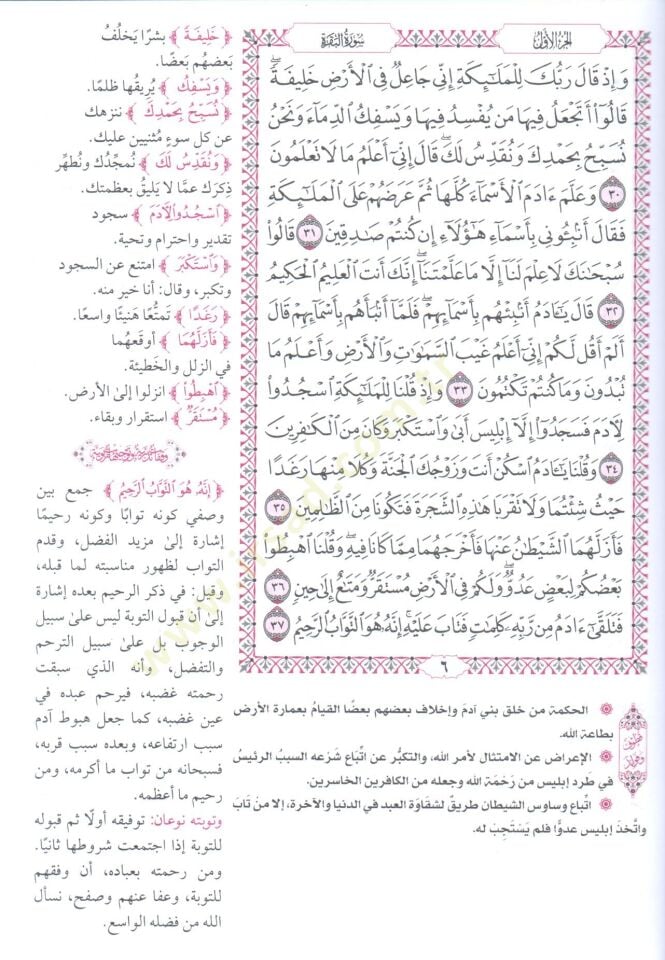 الجزء الأول
سورة البقرة
وَإِذْ قَالَ رَبُّكَ لِلْمَلَٰٓئِكَةِ إِنِّي جَاعِلٌ فِي ٱلْأَرْضِ خَلِيفَةً ۖ
قَالُوٓا۟ أَتَجْعَلُ فِيهَا مَن يُفْسِدُ فِيهَا وَيَسْفِكُ ٱلدِّمَآءَ وَنَحْنُ
نُسَبِّحُ بِحَمْدِكَ وَنُقَدِّسُ لَكَ ۖ قَالَ إِنِّىٓ أَعْلَمُ مَا لَا تَعْلَمُونَ
٣٠ وَعَلَّمَ ءَادَمَ ٱلْأَسْمَآءَ كُلَّهَا ثُمَّ عَرَضَهُمْ عَلَى ٱلْمَلَٰٓئِكَةِ
فَقَالَ أَنۢبِـُٔونِى بِأَسْمَآءِ هَٰٓؤُلَآءِ إِن كُنتُمْ صَٰدِقِينَ ٣١ قَالُوا۟
سُبْحَٰنَكَ لَا عِلْمَ لَنَآ إِلَّا مَا عَلَّمْتَنَآ ۖ إِنَّكَ أَنتَ ٱلْعَلِيمُ ٱلْحَكِيمُ
٣٢ قَالَ يَٰٓـَٔادَمُ أَنۢبِئْهُم بِأَسْمَآئِهِمْ ۖ فَلَمَّآ أَنۢبَأَهُم بِأَسْمَآئِهِمْ قَالَ
أَلَمْ أَقُل لَّكُمْ إِنِّىٓ أَعْلَمُ غَيْبَ ٱلسَّمَٰوَٰتِ وَٱلْأَرْضِ وَأَعْلَمُ مَا
تُبْدُونَ وَمَا كُنتُمْ تَكْتُمُونَ ٣٣ وَإِذْ قُلْنَا لِلْمَلَٰٓئِكَةِ ٱسْجُدُوا۟
لِـَٔادَمَ فَسَجَدُوٓا۟ إِلَّآ إِبْلِيسَ أَبَىٰ وَٱسْتَكْبَرَ وَكَانَ مِنَ ٱلْكَٰفِرِينَ
٣٤ وَقُلْنَا يَٰٓـَٔادَمُ ٱسْكُنْ أَنتَ وَزَوْجُكَ ٱلْجَنَّةَ وَكُلَا مِنْهَا رَغَدًا
حَيْثُ شِئْتُمَا وَلَا تَقْرَبَا هَٰذِهِ ٱلشَّجَرَةَ فَتَكُونَا مِنَ ٱلظَّٰلِمِينَ ٣٥
فَأَزَلَّهُمَا ٱلشَّيْطَٰنُ عَنْهَا فَأَخْرَجَهُمَا مِمَّا كَانَا فِيهِ ۖ وَقُلْنَا ٱهْبِطُوا۟
بَعْضُكُمْ لِبَعْضٍ عَدُوٌّ ۖ وَلَكُمْ فِى ٱلْأَرْضِ مُسْتَقَرٌّ وَمَتَٰعٌ إِلَىٰ حِينٍ ٣٦
فَتَلَقَّىٰٓ ءَادَمُ مِن رَّبِّهِۦ كَلِمَٰتٍ فَتَابَ عَلَيْهِ ۚ إِنَّهُۥ هُوَ ٱلتَّوَّابُ ٱلرَّحِيمُ ٣٧
٦
﴿خَلِيفَةً﴾ بشرًا يَخلُفُ
بَعضُهُم بَعضًا.
﴿وَيَسْفِكُ﴾ يُريقُها ظلمًا.
﴿نُسَبِّحُ بِحَمْدِكَ﴾ ننزهك
عن كل سوءٍ مُثنِيين عليك.
﴿وَنُقَدِّسُ لَكَ﴾ نُمجِّدُك ونُطهِّر
ذِكرَك عمَّا لا يَليقُ بعظمتك.
﴿ٱسْجُدُوا۟ لِـَٔادَمَ﴾ سجود
تقدير واحترام وتحية.
﴿وَٱسْتَكْبَرَ﴾ امتنع عن السجود
وتكبر، وقال: أنا خير منه.
﴿رَغَدًا﴾ تمتُّعًا هَنيئًا واسعًا.
﴿فَأَزَلَّهُمَا﴾ أوقعَهُما
في الزلل والخَطيئة.
﴿ٱهْبِطُوا۟﴾ انزلوا إلى الأرض.
﴿مُسْتَقَرٌّ﴾ استقرار وبقاء.
﴿إِنَّهُۥ هُوَ ٱلتَّوَّابُ ٱلرَّحِيمُ﴾ جمع بين
وصفي كونه توابًا وكونه رحيمًا
إشارة إلى مزيد الفضل، وقدم
التواب لظهور مناسبته لما قبله،
وقيل: في ذكر الرحيم بعده إشارة
إلى أن قبول التوبة ليس على سبيل
الوجوب بل على سبيل الترحم
والتفضل، وأنه الذي سبقت
رحمته غضبه، فيرحم عبده في
عين غضبه، كما جعل هبوط آدم
سبب ارتفاعه، وبعده سبب قربه،
فسبحانه من تواب ما أكرمه، ومن
رحيم ما أعظمه.
وتوبته نوعان: توفيقه أولًا ثم قبوله
للتوبة إذا اجتمعت شروطها ثانيًا.
ومن رحمته بعباده، أن وفقهم
للتوبة، وعفا عنهم وصفح، نسأل
الله من فضله الواسع.
الحكمة من خلق بني آدمَ وإخلاف بعضهم بعضًا القيامُ بعمارة الأرض
بطاعة الله.
الإعراض عن الامتثال لأمر الله، والتكبُّر عن اتِّباع شَرْعه السببُ الرئيسُ
في طَرد إبليس من رَحْمَة الله وجعله من الكافرين الخاسرين.
اتِّباع وساوس الشيطان طريقٌ لشقاوَة العبد في الدنيا والآخرة، إلا من تَابَ
واتَّخذَ إبليس عدوًّا فلم يَستَجِبْ له.